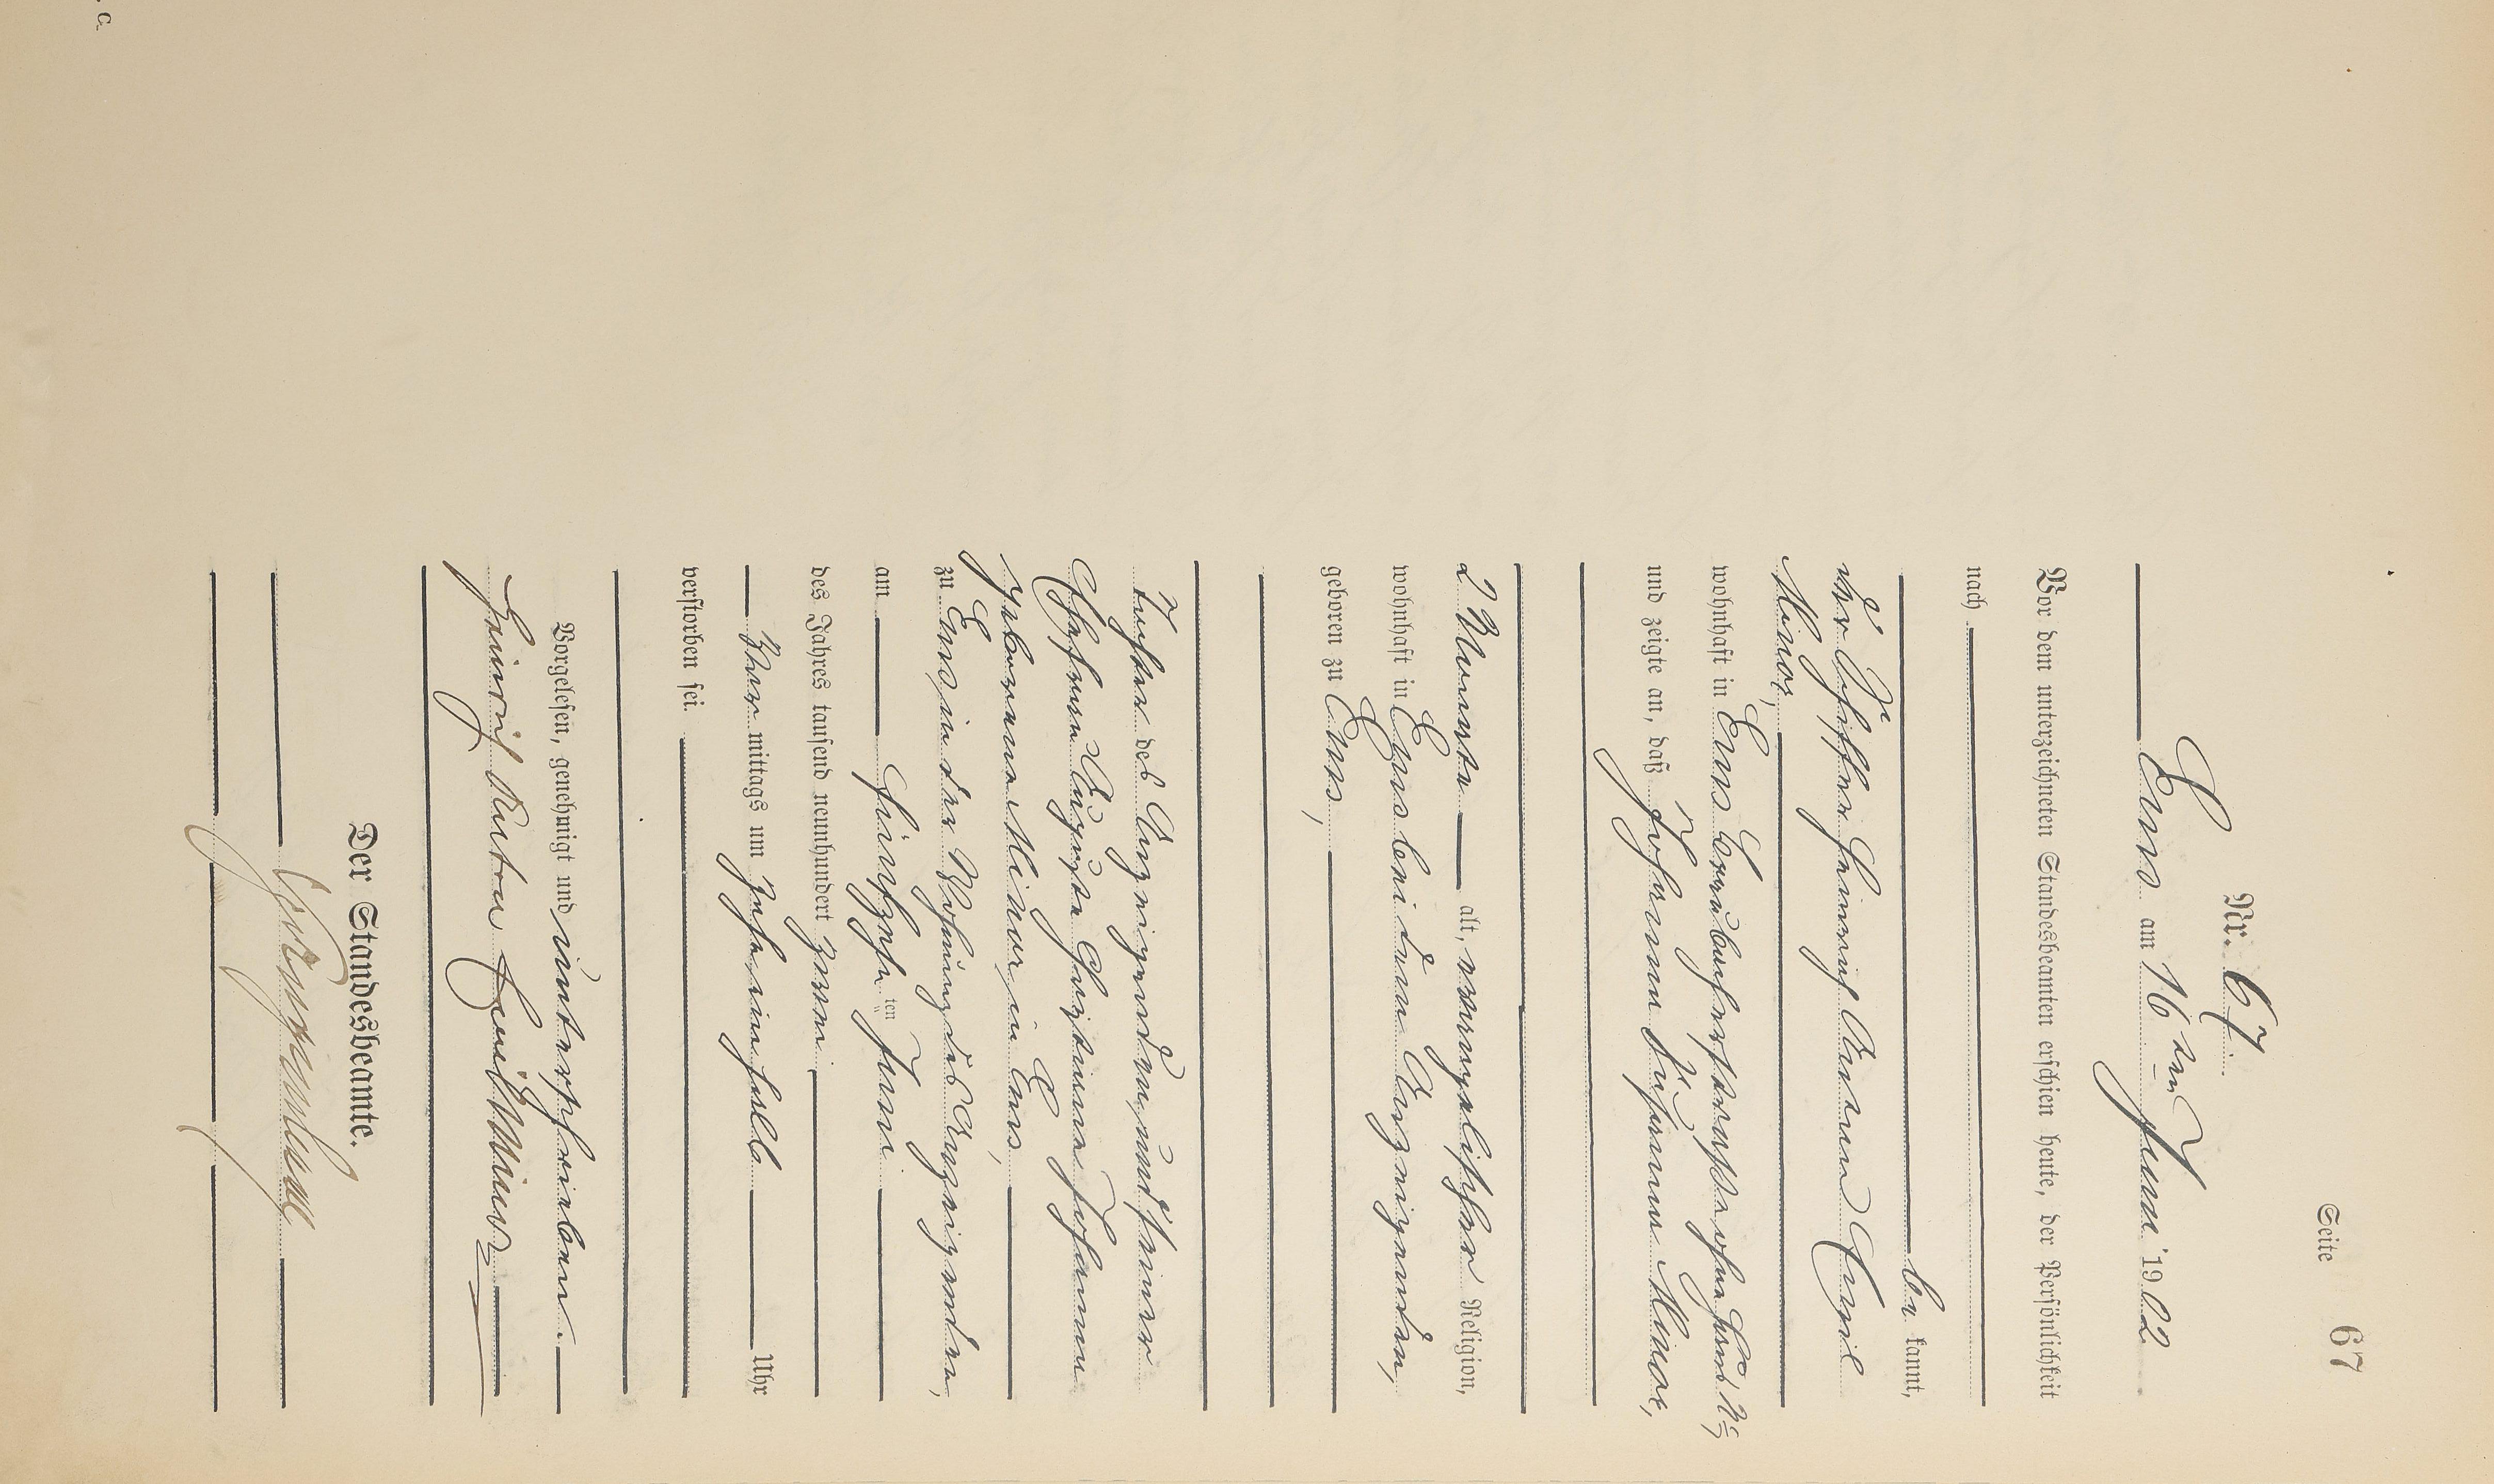 Seite 67
Nr. 67.
Ems am 16ten Juni 1902
Vor dem unterzeichneten Standesbeamten erschien heute, der Persönlichkeit
nach
be kannt,
der Schiffer Heinrich Anton Emil
Minor,
wohnhaft in Ems Grabenstraße ohne Haus Nr.,
und zeigte an, daß Johanna Susanna Minor,
2 Monate alt, evangelischer Religion,
wohnhaft in Ems bei dem Anzeigenden,
geboren zu Ems,
Tochter des Anzeigenden, und seiner
Ehefrau Auguste Christiane Johanna
geborene Minor in Ems,
zu Ems, in der Wohnung des Anzeigenden,
am fünfzehn ten Juni
des Jahres tausend neunhundert zwei
Vor mittags um zehn ein halb Uhr
verstorben sei.
Vorgelesen, genehmigt und unterschrieben.
Heinrich Anton Emil Minor
Der Standesbeamte.
c.